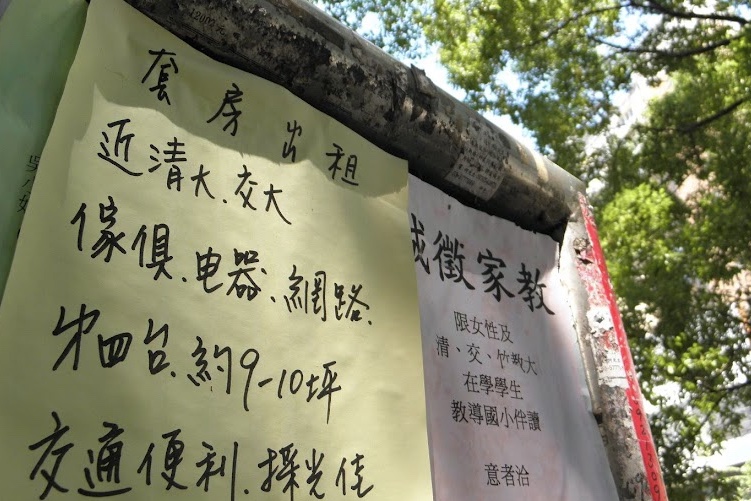 套房出租
近清大、交大
傢俱、电器、網路、
第四台、約9-10坪
交通便利、採光佳
誠徵家教
限女性及
清、交、竹教大
在學學生
教導國小伴讀
意者洽